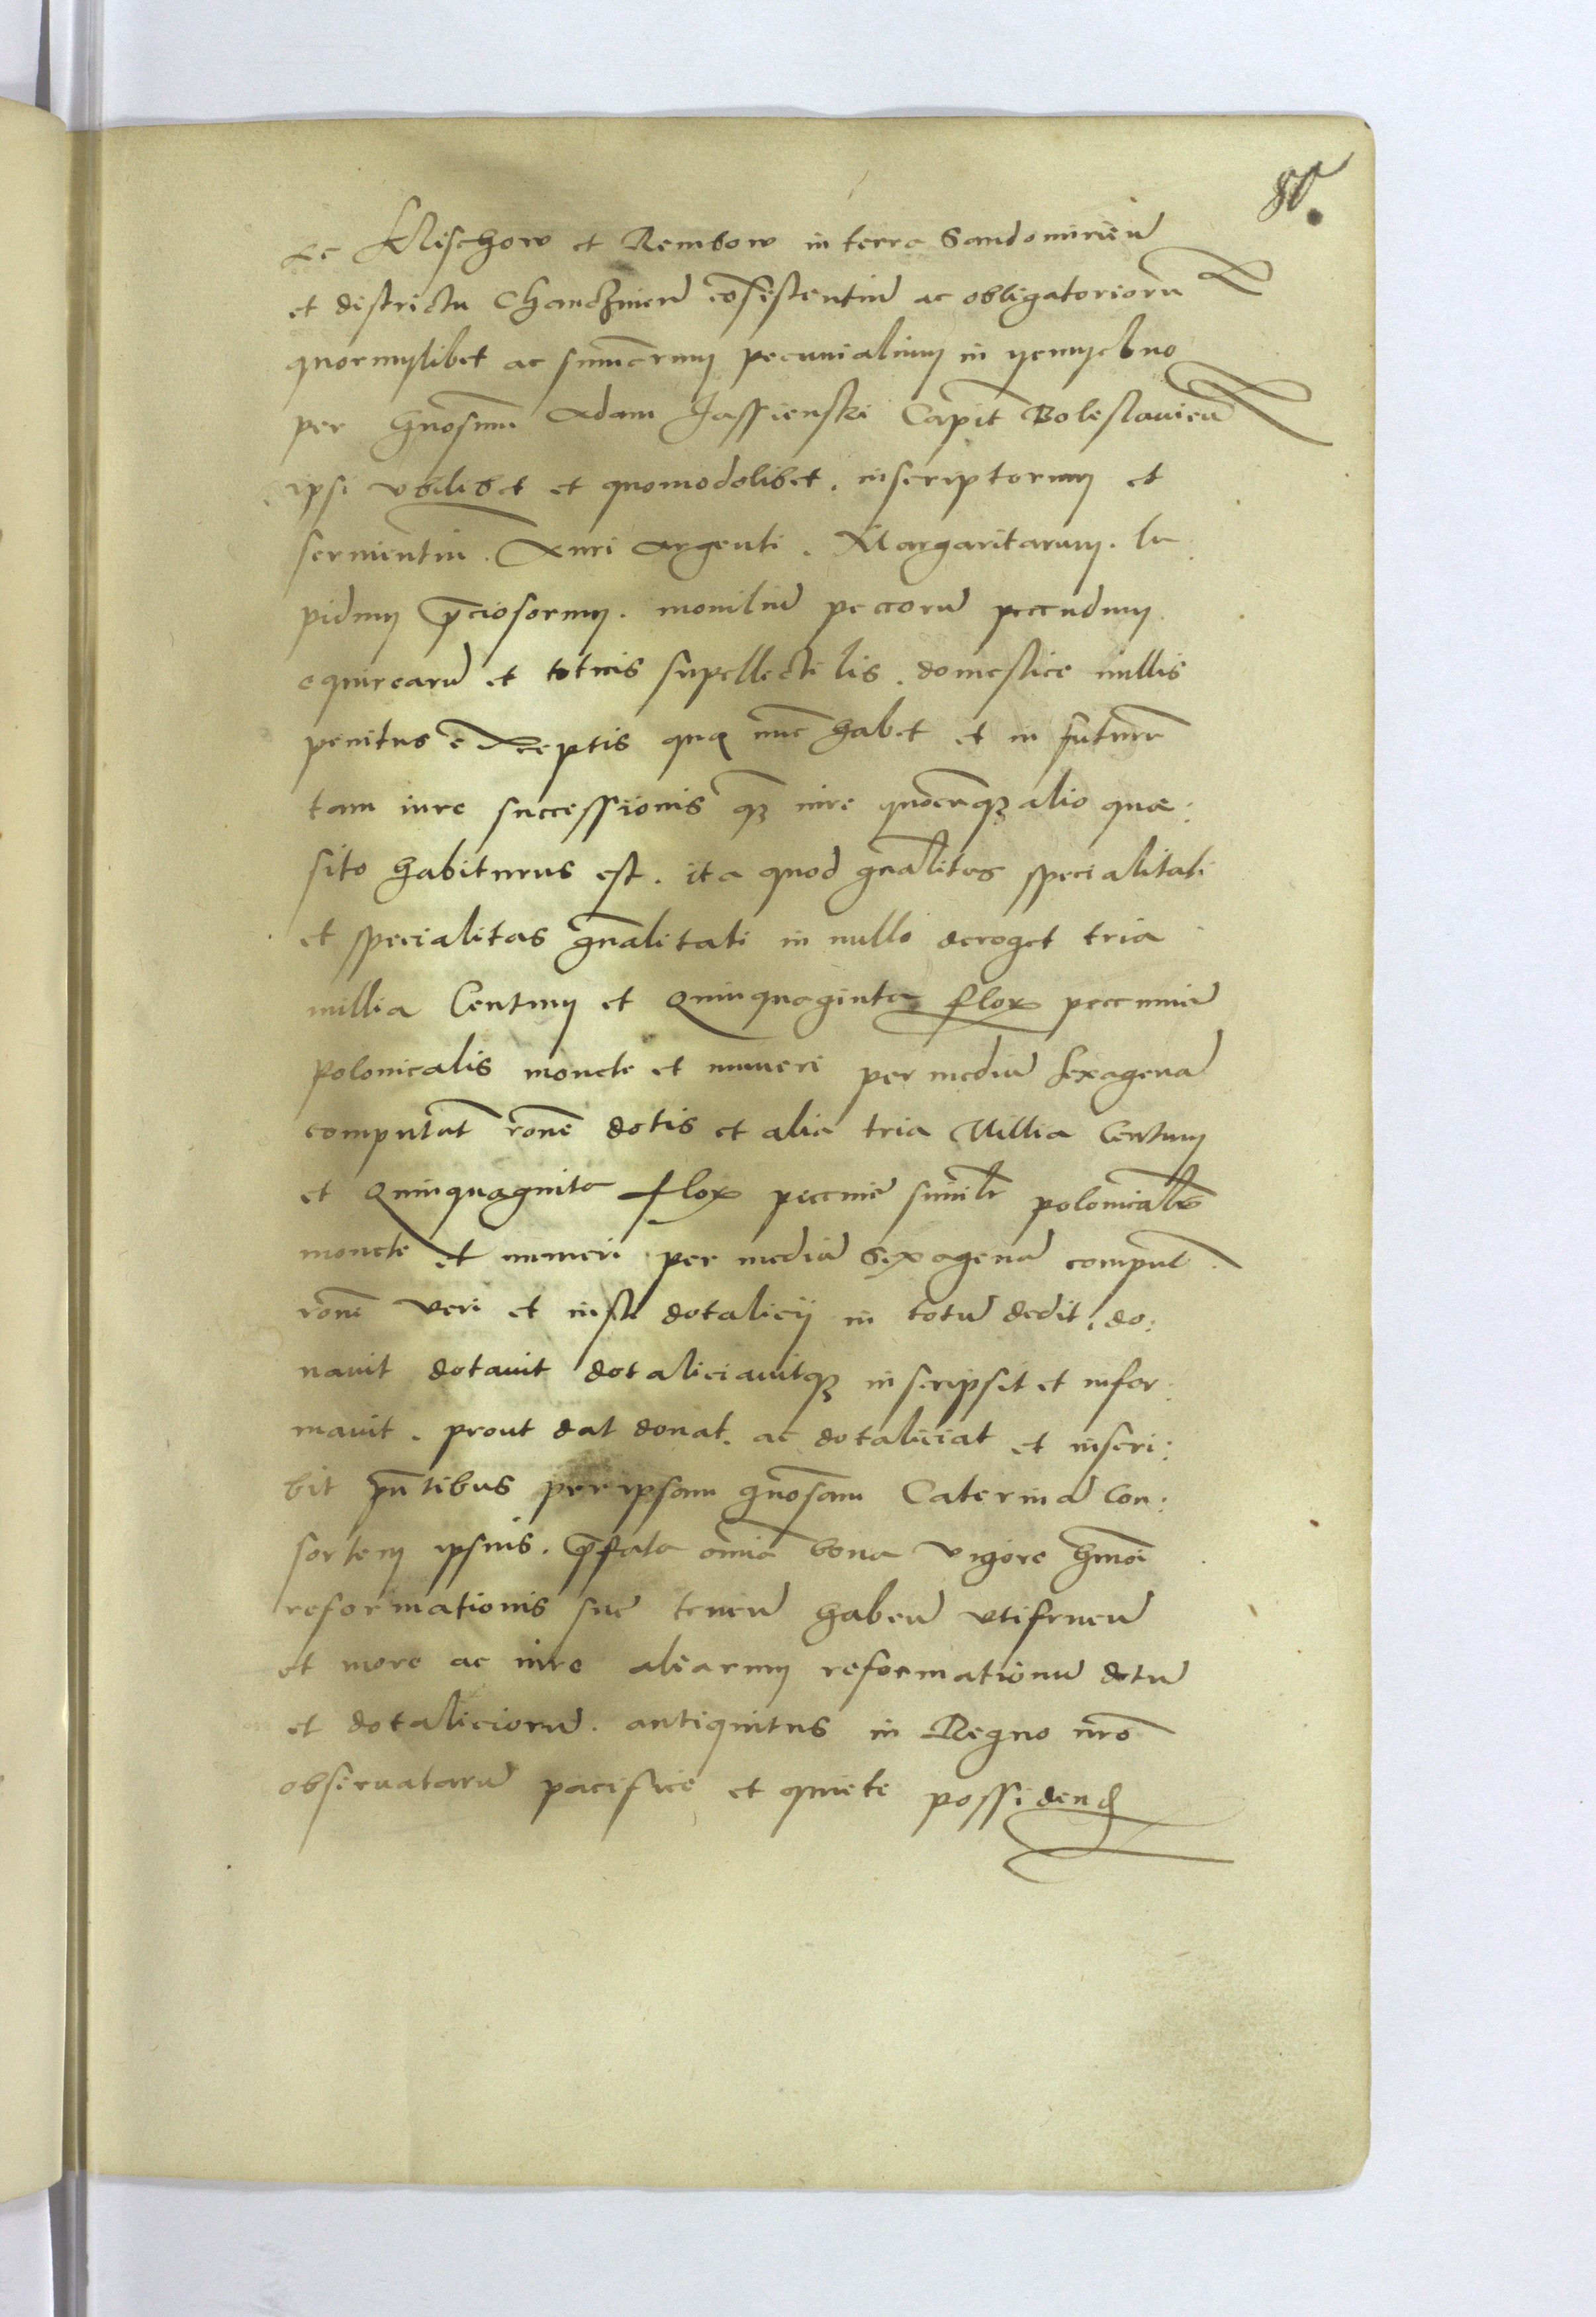 80.
Klischow et Rembow in terra Sandomirien
et districtu Chanczinien consistentiu ac obligatorioru
quorumlibet ac summarum pecunialium in
per Gnosum Adam Jassienski Capit Boleslavien
ipsi ubilibet et quomodolibet. inscriptorum et
servientiu. Auri argenti. Margaritarum. la
pidum preciosorum. moniliu peccoru peccudum
equirearu et totius supellectilis. domestice nullis
penitus exceptis que nunc habet et in futurum
tam iure successionis quam iure quocunque alio quae:
sito habiturus est. ita quod gnalitas specialitati
et specialitas gnalitati in nullo deroget tria
millia Centum et Quinquaginta flor peccunie
polonicalis monete et numeri per mediu sexagena
computat rone dotis et alia tria Millia Centum
et Quinquaginta flor peccunie similr polonicalis
monete et numeri per mediu sexagena comput
rone veri et iusti dotalicii in totu dedit, do:
navit dotavit dotaliciavitque inscripsit et infor:
mavit. prout dat donat. ac dotaliciat et inscri:
bit pntibus per ipsam gnosam Caterina Con:
sortem ipsius. prefata omnia bona vigore hmoi
reformationis sue tenen haben utifruen
et more ac iure aliarum reformationu dotu
et dotalicioru. antiquitus in Regno nro
observataru pacifice et quiete possidend